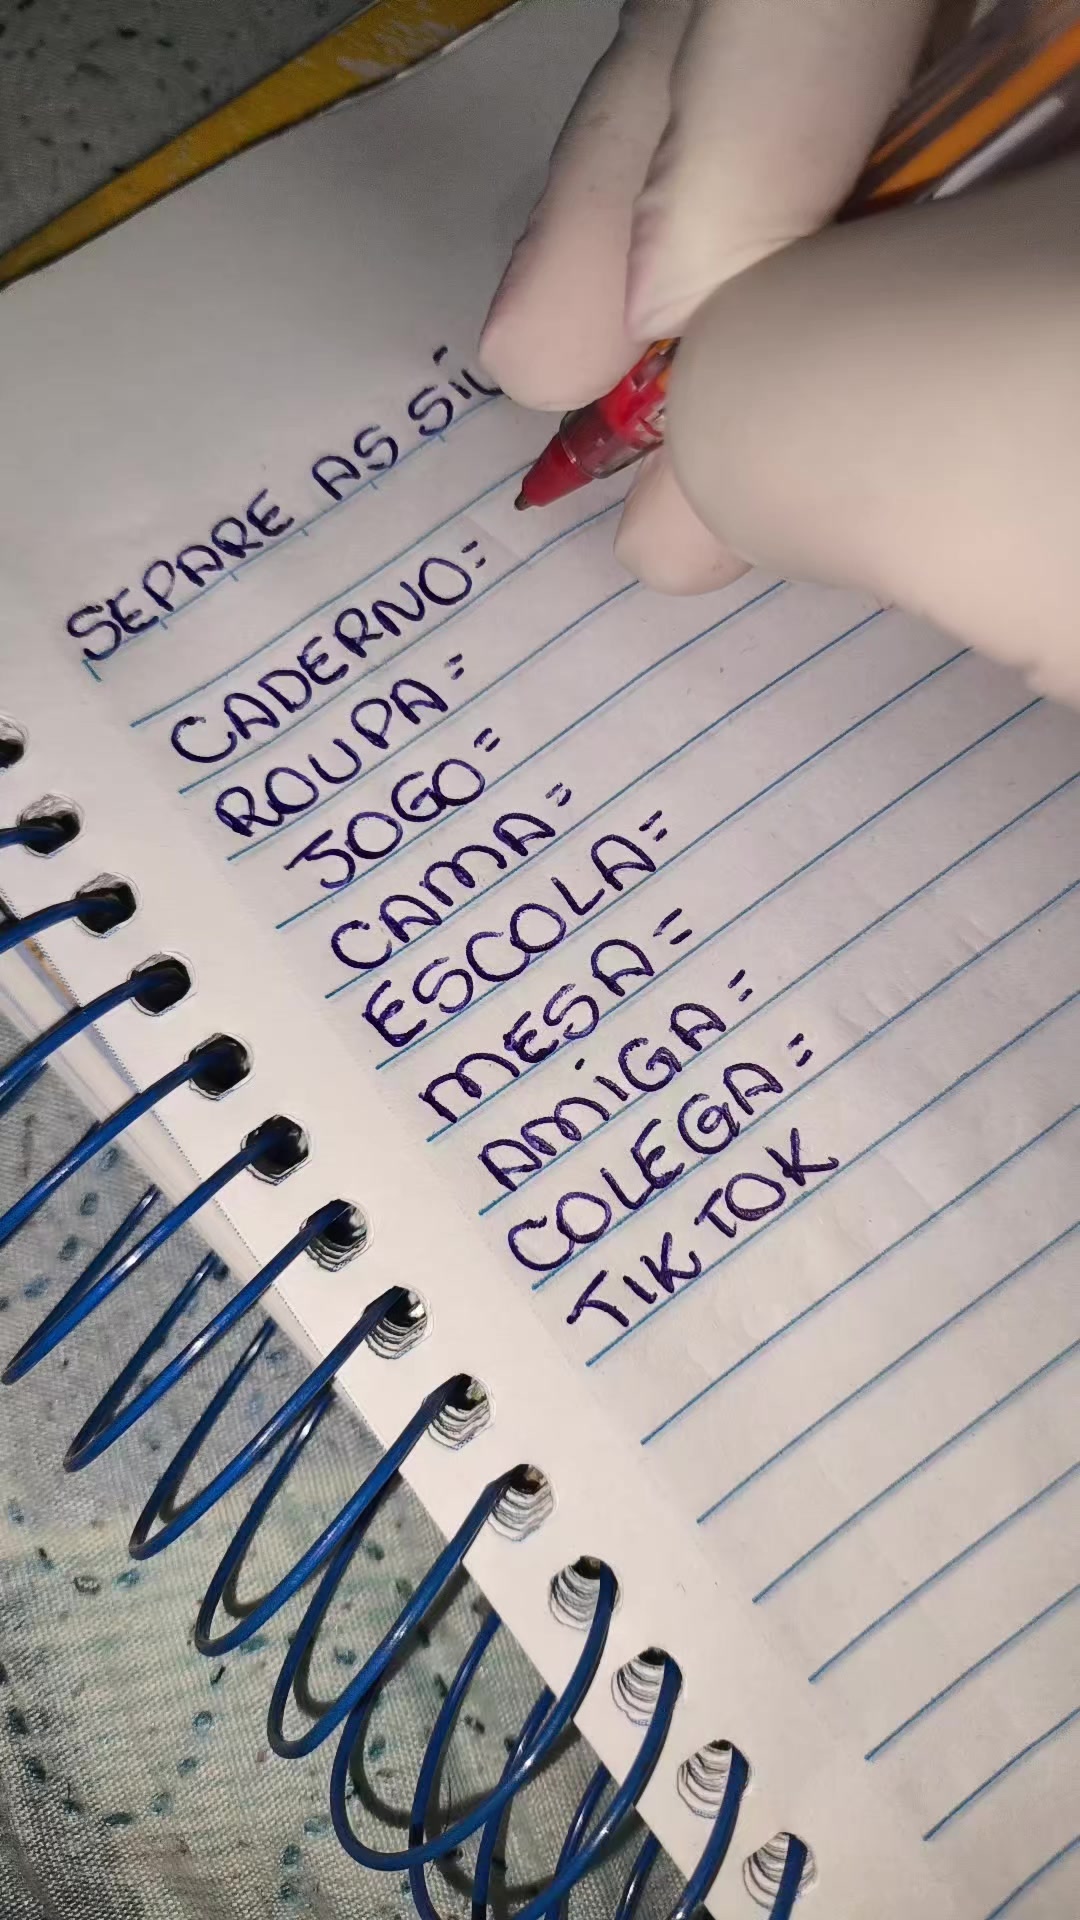 SEPARE AS SÍL
CADERNO=
ROUPA=
JOGO=
CAMA=
ESCOLA=
MESA=
AMIGA=
COLEGA=
TIK TOK